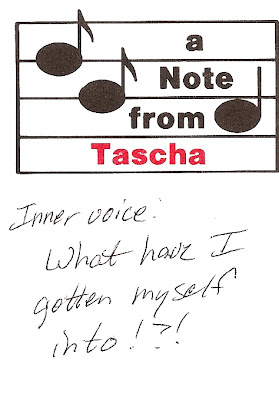 a
Note
from
Tascha
Inner voice:
What have I
gotten myself
into!?!